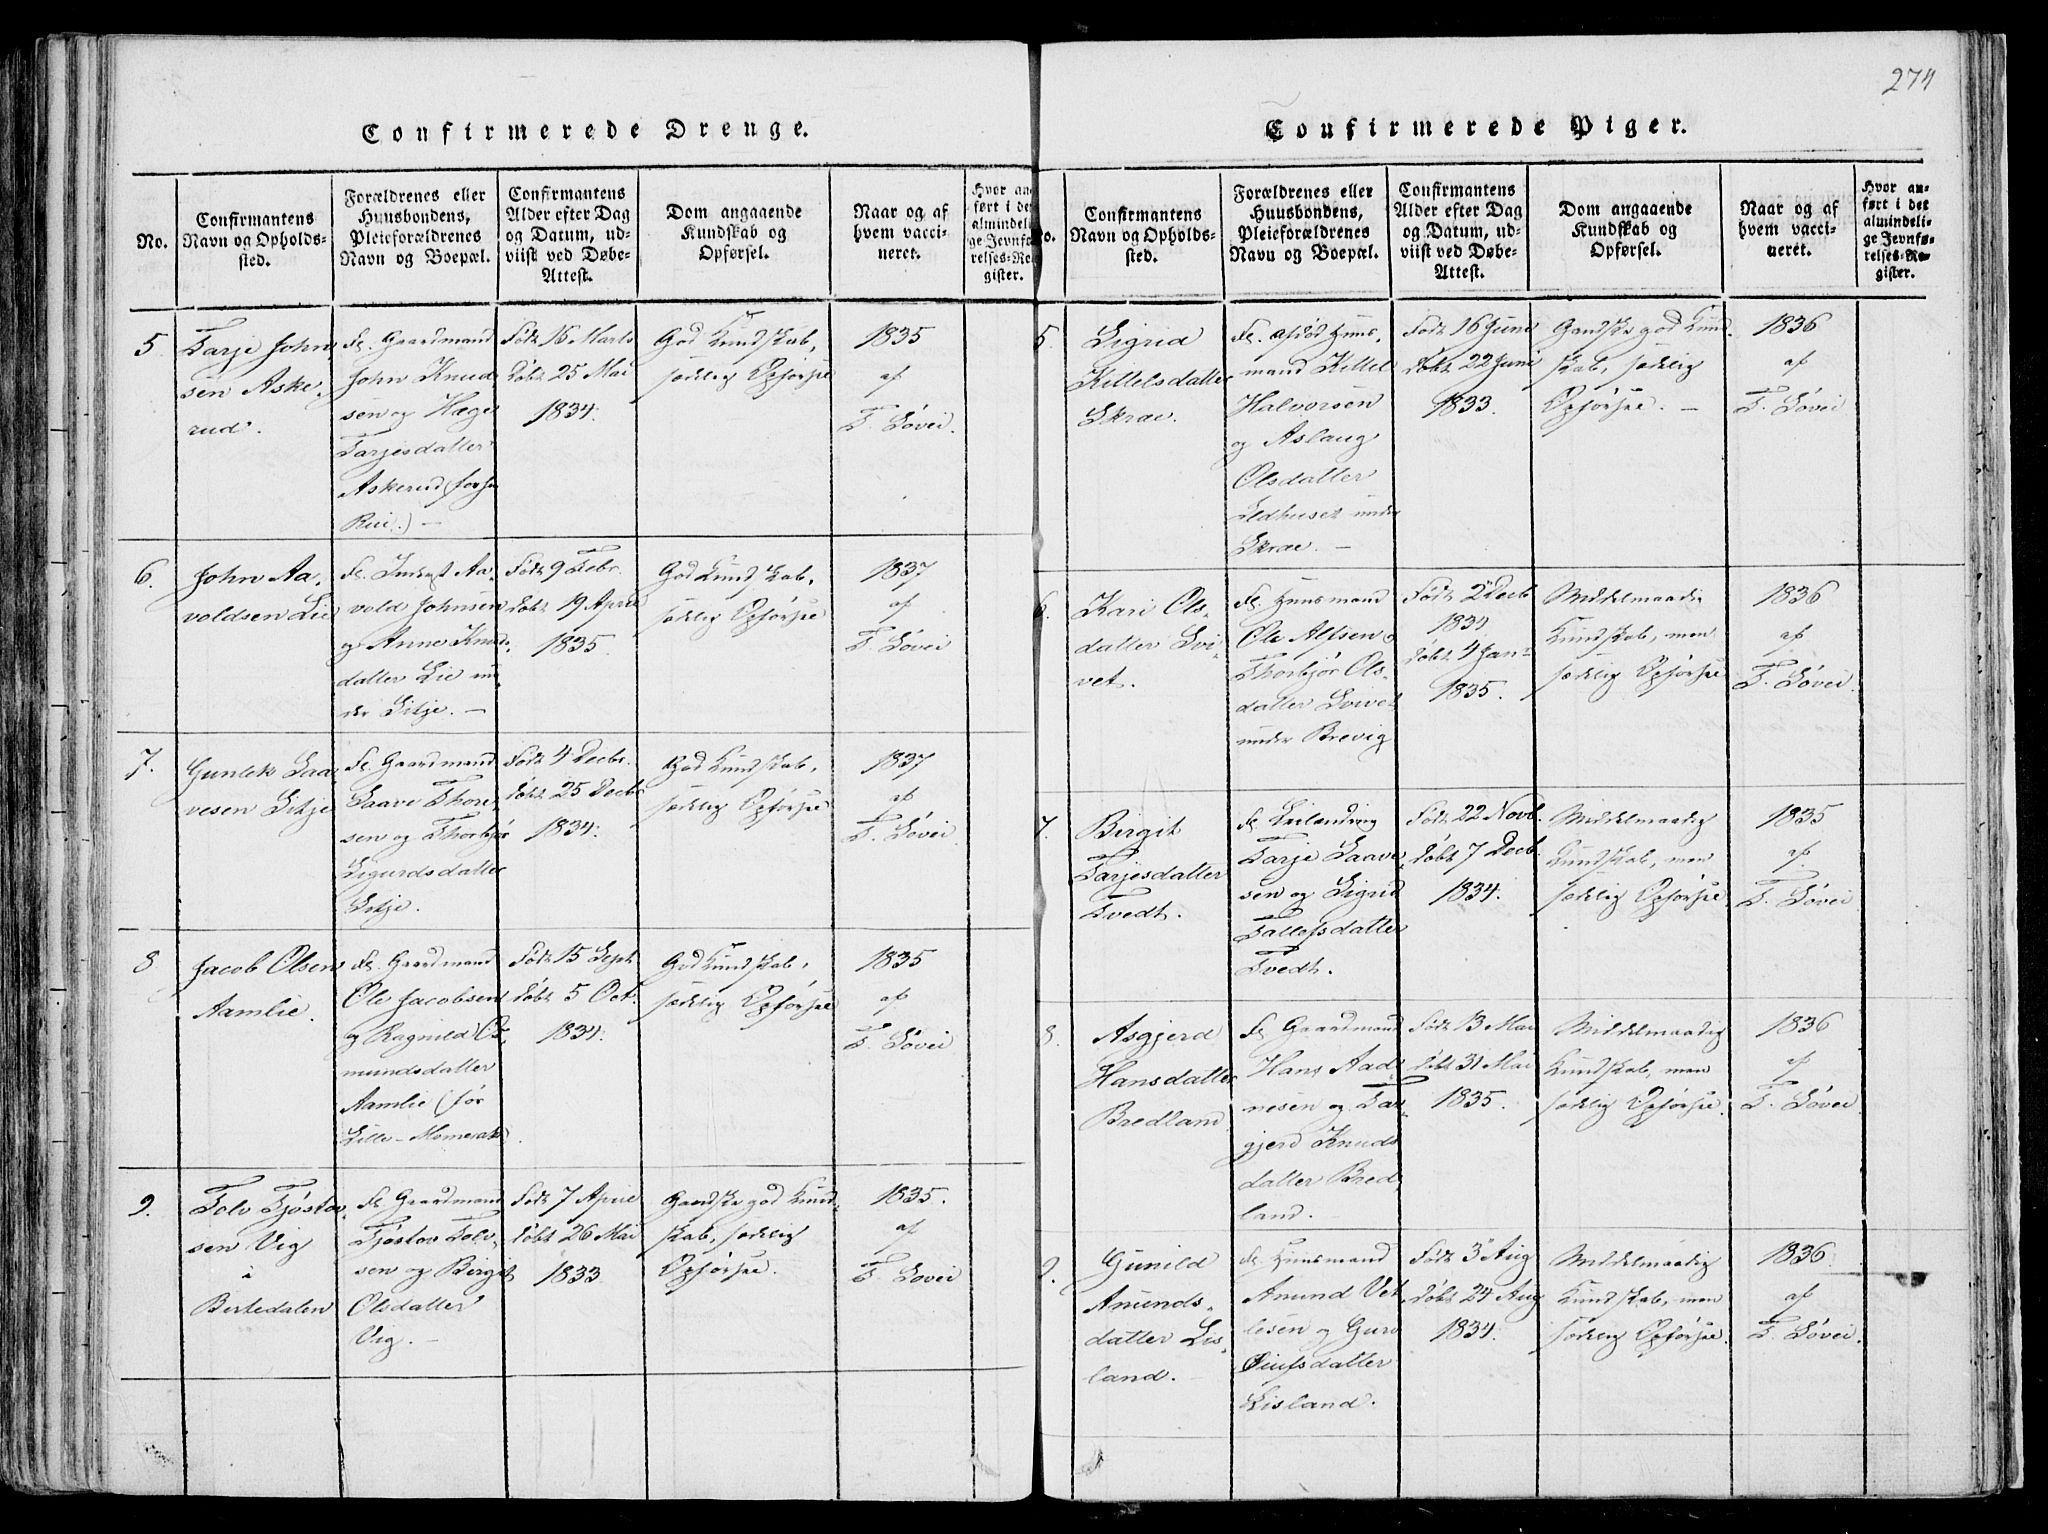 274
Confirmerede Drenge.
No.
Confirmantens
Navn og Opholds-
sted.
Forældrenes eller
Huusbondens,
Pleieforældrenes
Navn og Boepæl.
Confirmantens
Alder efter Dag
og Datum, ud-
viist ved Døbe-
Attest.
Dom angaaende
Kundskab og
Opførsel.
Naar og af
hvem vacci-
neret.
Hvor an-
ført i det
almindeli-
ge Jevnfø-
relses-Re-
gister.
5.
Tarje John
sen Aske-
rud.
Gaardmand
John Knud
sen og Hæge
Tarjesdatter
Askerud (
Rui.) —
Født 16 Marts
døbt 25 Mai
1834.
God Kundskab,
sædelig Opførsel
1835
af
T. Løvei.
6.
John Aa-
voldsen Lie
Inderst Aa-
vold Johnsen
og Anne Knuds-
datter Lie un-
der Sitje. —
Født 9 Febr.
døbt 19 April
1835.
God Kundskab,
sædelig Opførsel
1837
af
T. Løvei
7.
Gunlek Saa-
vesen Sitje
Gaardmand
Saave Thore-
sen og Thorbjør
Sigurdsdatter
Sitje.
Født 4 Decbr.
døbt 25 Decbr
1834.
God Kundskab,
sædelig Opførsel
1837
af
T. Løvei
8
Jacob Olsen
Aamlie.
Gaardmand
Ole Jacobsen
og Ragnild Os-
mundsdatter
Aamlie (før
Lille-Momerak)
Født 15 Sept
døbt 5 Oct.
1834.
God Kundskab,
sædelig Opførsel
1835
af
T. Løvei
9.
Tolv Tjøstov-
sen Vig
i
Birtedalen
Gaardmand
Tjøstov Tolv-
sen og Birgit
Olsdatter
Vig. —
Født 7 April
døbt 26 Mai
1833
Gandske god Kund-
skab, sædelig
Opførsel.
1835.
af
T. Løvei
Confirmerede Piger.
No.
Confirmantens
Navn og Opholds-
sted.
Forældrenes eller
Huusbondens,
Pleieforældrenes
Navn og Boepæl.
Confirmantens
Alder efter Dag
og Datum, ud-
viist ved Døbe-
Attest.
Dom angaaende
Kundskab og
Opførsel.
Naar og af
hvem vacci-
neret.
Hvor an-
ført i det
almindeli-
ge Jevnfø-
relses-Re-
gister.
5.
Sigrid
Kittelsdatter
Skrae.
afdød Huus-
mand Kittel
Halvorsen
og Aslaug
Olsdatter
Eldhuset under
Skrae. —
Født 16 Juni
døbt 22 Juni
1833.
Gandske god Kund-
skab, sædelig
Opførsel. —
1836
af
T. Løvei
6.
Kari Ols-
datter Svi-
vet.
Huusmand
Ole Alfsen og
Thorbjør Ols-
datter Svivet
under Brevig
Født 2 Decb
1834
døbt 4 Jan
1835.
Middelmaadig
Kundskab, men
sædelig Opførsel
1836
af
T. Løvei
7.
Birgit
Tarjesdatter
Tvedt.
Leilænding
Tarje Saave-
sen og Sigrid
Tallefsdatter
Tvedt.
Født 22 Novb.
døbt 7 Decb.
1834.
Middelmaadig
Kundskab, men
sædelig Opførsel
1835
af
T. Løvei
8.
Asgjerd
Hansdatter
Bredland
Gaardmand
Hans Aad-
nesen og Tar-
gjerd Knuds
datter Bred-
land. —
Født 13 Mai
døbt 31 Mai
1835.
Middelmaadig
Kundskab, men
sædelig Opførsel.
1836
af
T. Løvei
9.
Gunild
Anunds-
datter Lis-
land. —
Huusmand
Anund Vet-
lesen og Guro
Eiufsdatter
Lisland.
Født 3 Aug
døbt 24 Aug
1834.
Middelmaadig
Kundskab, men
sædelig Opførsel.
1836
af
T. Løvei.